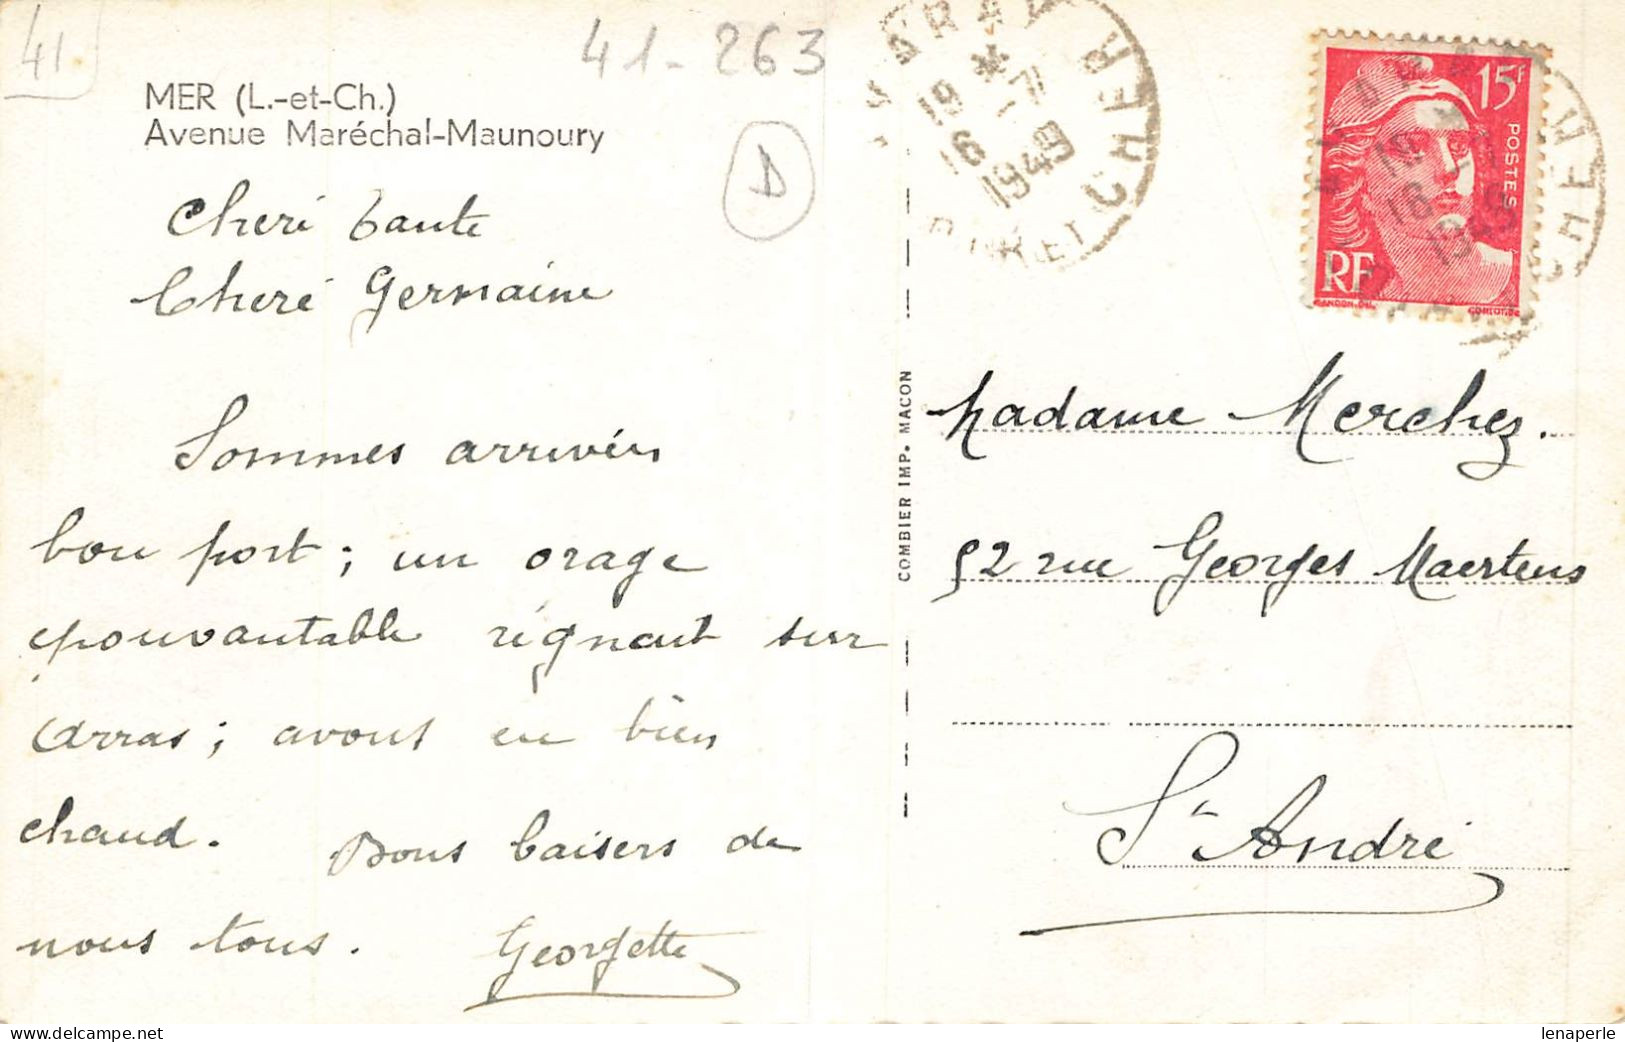 41
41-263
MER (L.-et-Ch.)
Avenue Maréchal-Maunoury
D
Cheri tante
Cheré Germaine
Sommes arrivés
bon port ; un orage
epouvantable régnait sur
Arras ; avons eu bien
chaud. Bons baisers de
nous tous. Georgette
COMBIER IMP. MACON
19 * 7
16
1949
CHER
15F
POSTES
RF
GANDON-DEL.
CORTOT-SC.
19
16
1949
CHER
Madame Merchez.
52 rue Georges Maertens
St André
lenaperle